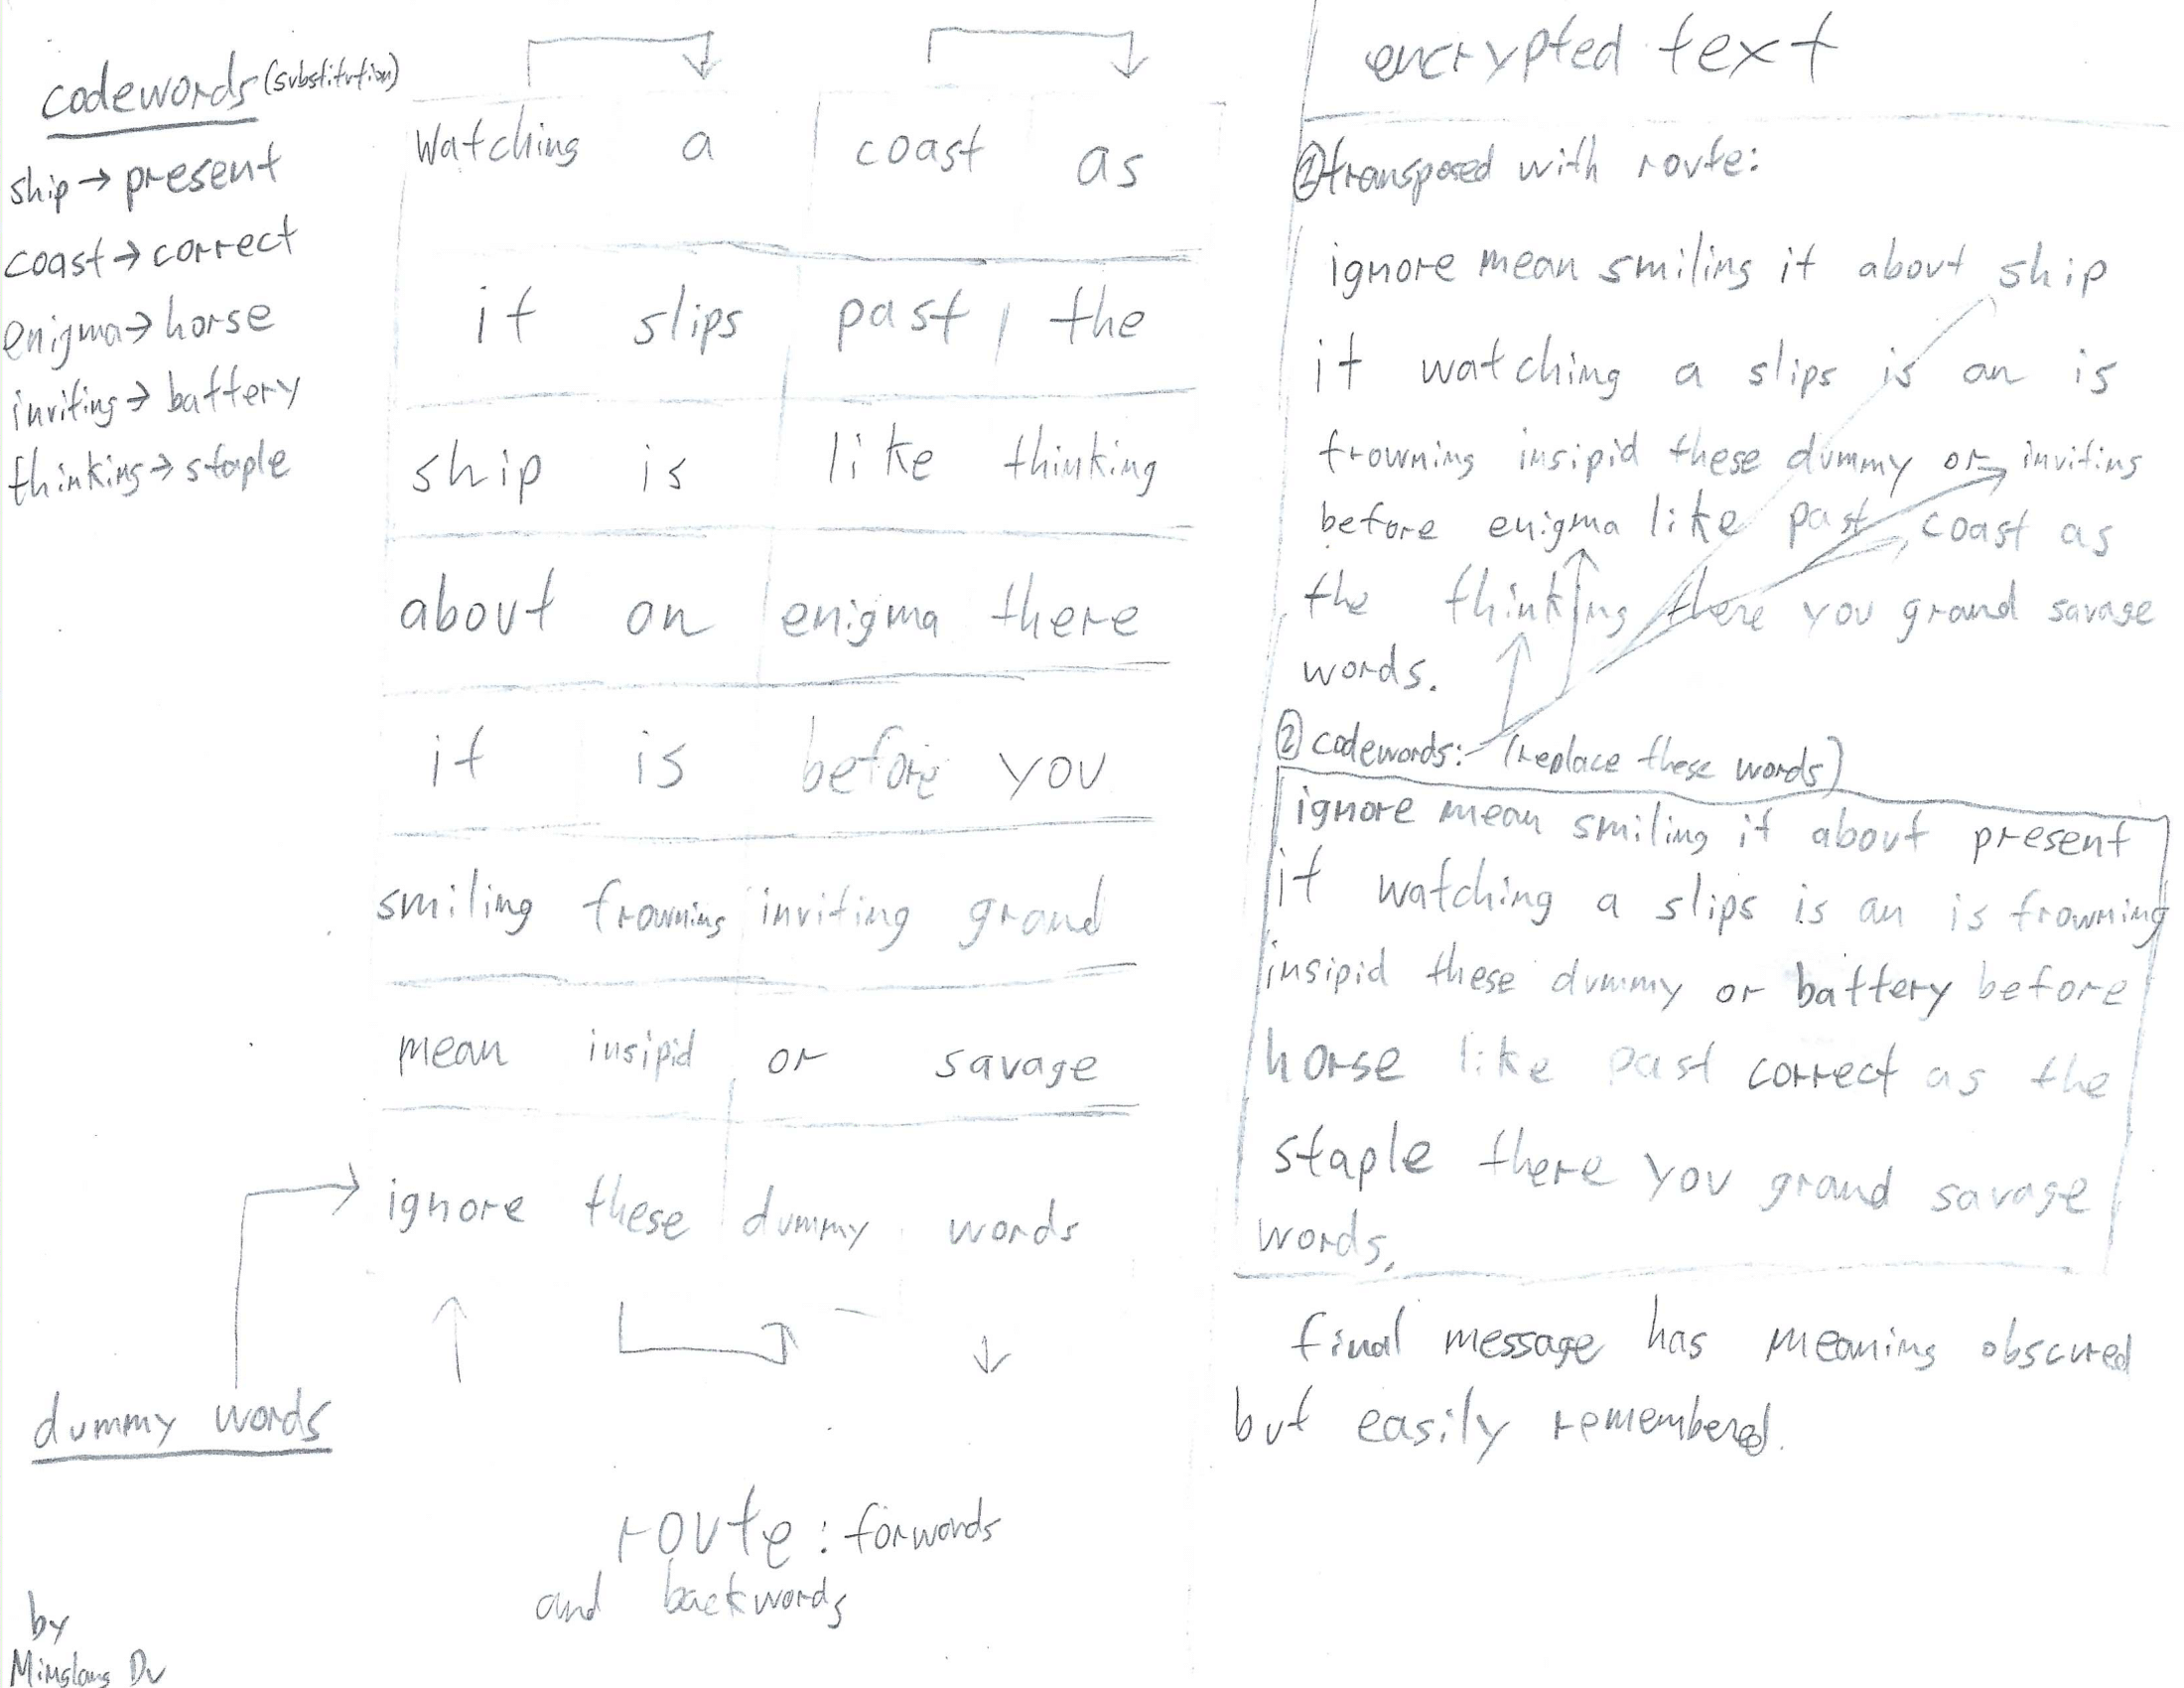 codewords (substitution)
ship → present
coast → correct
enigma → horse
inviting → battery
thinking → staple
Watching a coast as
it slips past, the
ship is like thinking
about an enigma there
it is before you
smiling frowning inviting grand
mean insipid or savage
ignore these dummy words
dummy words
route: forwords
and backwords
by
encrypted text
① transposed with route:
ignore mean smiling it about ship
it watching a slips is an is
frowning insipid these dummy or inviting
before enigma like past coast as
the thinking there you grand savage
words.
② codewords: (replace these words)
ignore mean smiling it about present
it watching a slips is an is frowning
insipid these dummy or battery before
horse like past correct as the
staple there you grand savage
words.
final message has meaning obscured
but easily remembered.